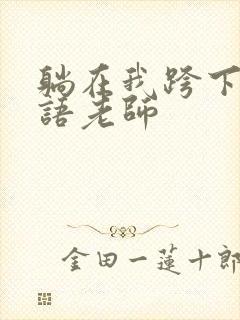 躺在我跨下
語老師
金田一蓮十郎